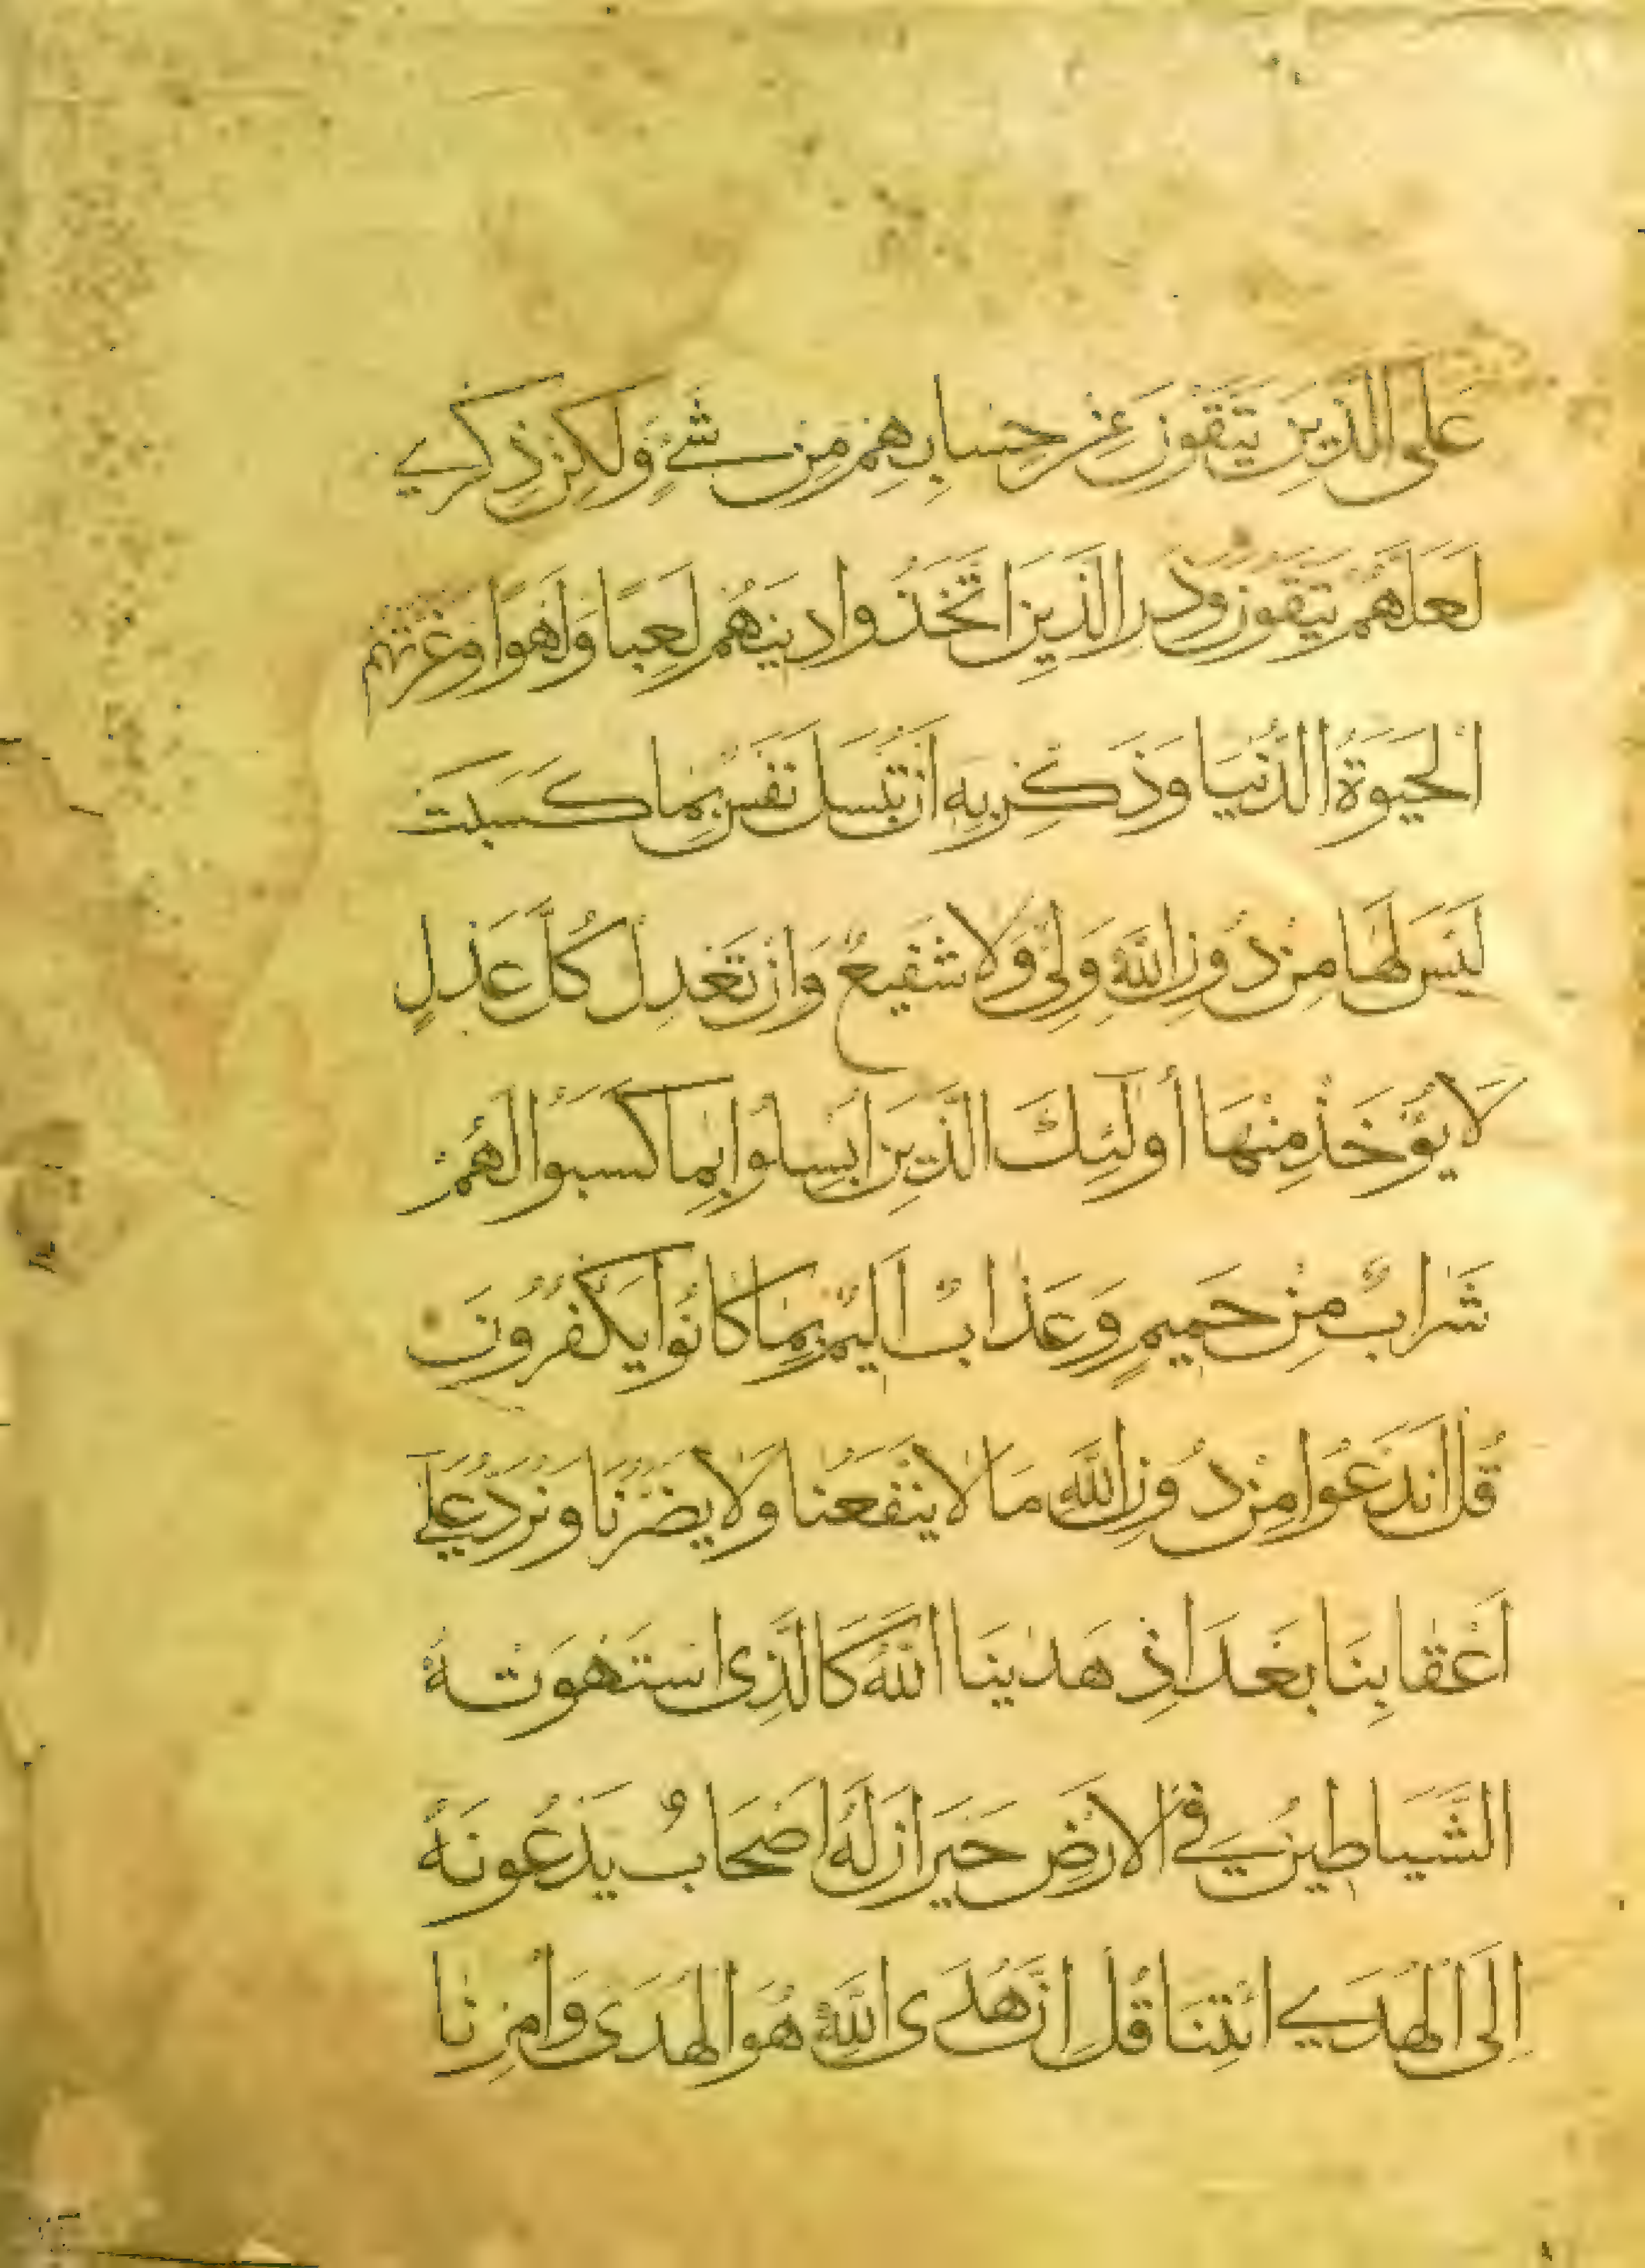 عَلَى الَّذِينَ يَتَّقُونَ مِنْ حِسَابِهِمْ مِنْ شَيْءٍ وَلَكِنْ ذِكْرَى
لَعَلَّهُمْ يَتَّقُونَ وَذَرِ الَّذِينَ اتَّخَذُوا دِينَهُمْ لَعِبًا وَلَهْوًا وَغَرَّتْهُمُ
الْحَيَوةُ الدُّنْيَا وَذَكِّرْ بِهِ أَنْ تُبْسَلَ نَفْسٌ بِمَا كَسَبَتْ
لَيْسَ لَهَا مِنْ دُونِ اللَّهِ وَلِيٌّ وَلَا شَفِيعٌ وَإِنْ تَعْدِلْ كُلَّ عَدْلٍ
لَا يُؤْخَذْ مِنْهَا أُولَئِكَ الَّذِينَ أُبْسِلُوا بِمَا كَسَبُوا لَهُمْ
شَرَابٌ مِنْ حَمِيمٍ وَعَذَابٌ أَلِيمٌ بِمَا كَانُوا يَكْفُرُونَ
قُلْ أَنَدْعُوا مِنْ دُونِ اللَّهِ مَا لَا يَنْفَعُنَا وَلَا يَضُرُّنَا وَنُرَدُّ عَلَى
أَعْقَابِنَا بَعْدَ إِذْ هَدَينَا اللَّهُ كَالَّذِي اسْتَهْوَتْهُ
الشَّيَاطِينُ فِي الْأَرْضِ حَيْرَانَ لَهُ أَصْحَابٌ يَدْعُونَهُ
إِلَى الْهُدَى ائْتِنَا قُلْ إِنَّ هُدَى اللَّهِ هُوَ الْهُدَى وَأُمِرْنَا